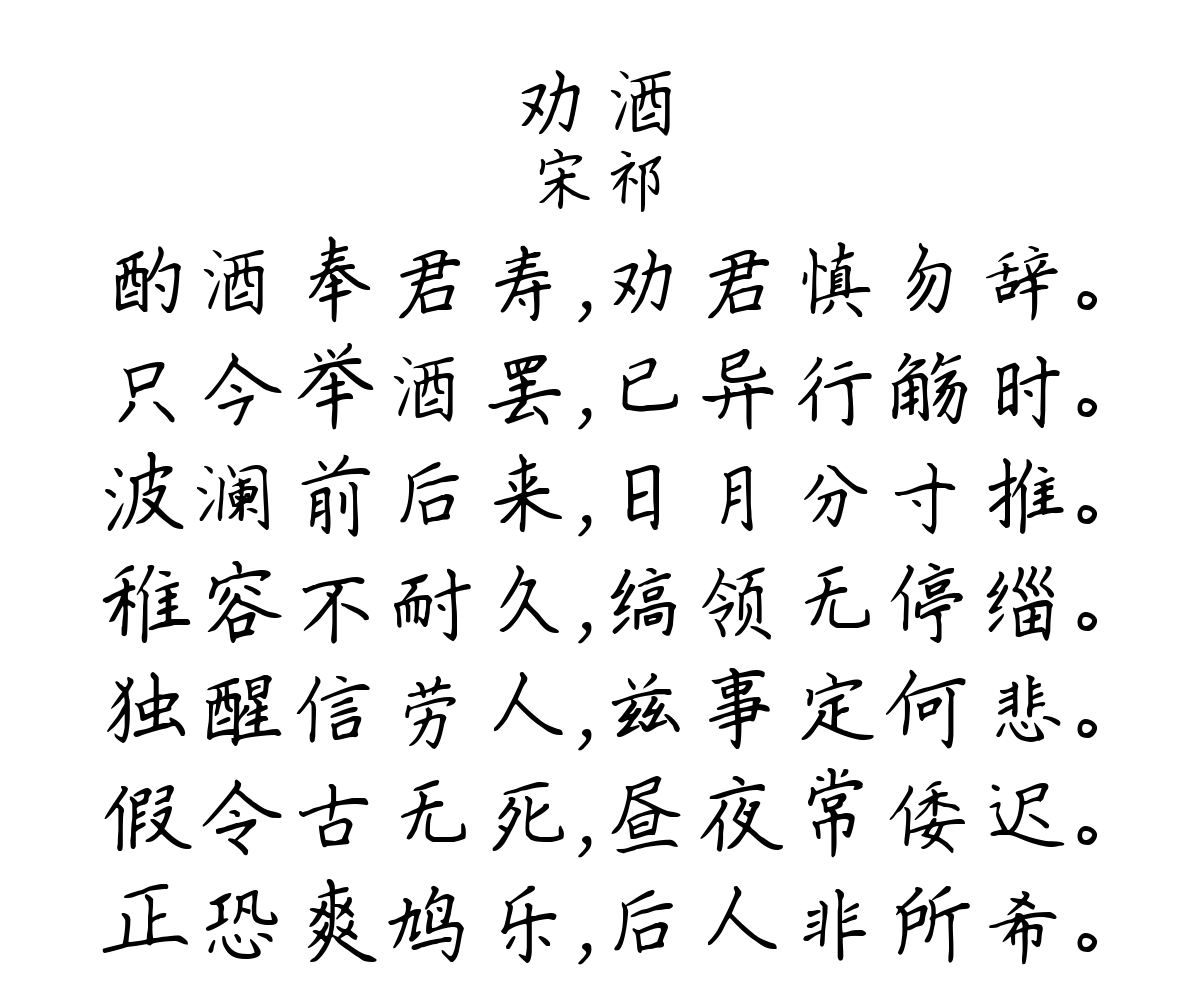 劝酒
宋祁
酌酒奉君寿,劝君慎勿辞。
只今举酒罢,已异行觞时。
波澜前后来,日月分寸推。
稚容不耐久,缟领无停缁。
独醒信劳人,兹事定何悲。
假令古无死,昼夜常倭迟。
正恐爽鸠乐,后人非所希。